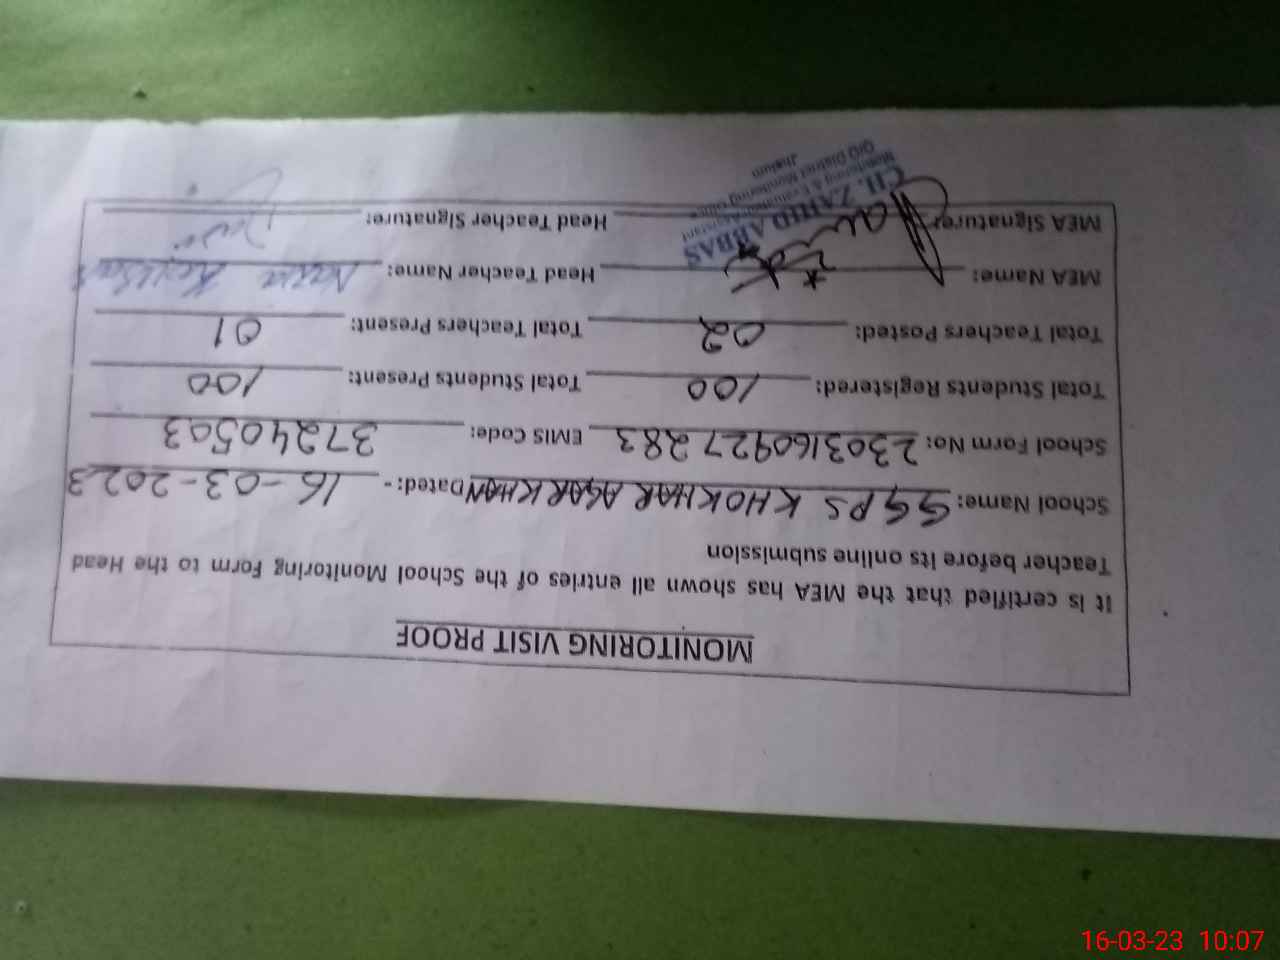 MONITORING VISIT PROOF
It is certified that the MEA has shown all entries of the School Monitoring Form to the Head
Teacher before its online submission
School Name: GGPS KHOKHAR AGAR KHAN Dated:- 16-03-2023
School Form No: 2303160927283 EMIS Code: 37240503
Total Students Registered: 100 Total Students Present: 100
Total Teachers Posted: 02 Total Teachers Present: 01
MEA Name: Head Teacher Name: Nazia
MEA Signature: Head Teacher Signature:
CH. ZAHID ABBAS
Monitoring & Evaluation Assistant
O/O District Monitoring Officer
Jhelum
16-03-23 10:07